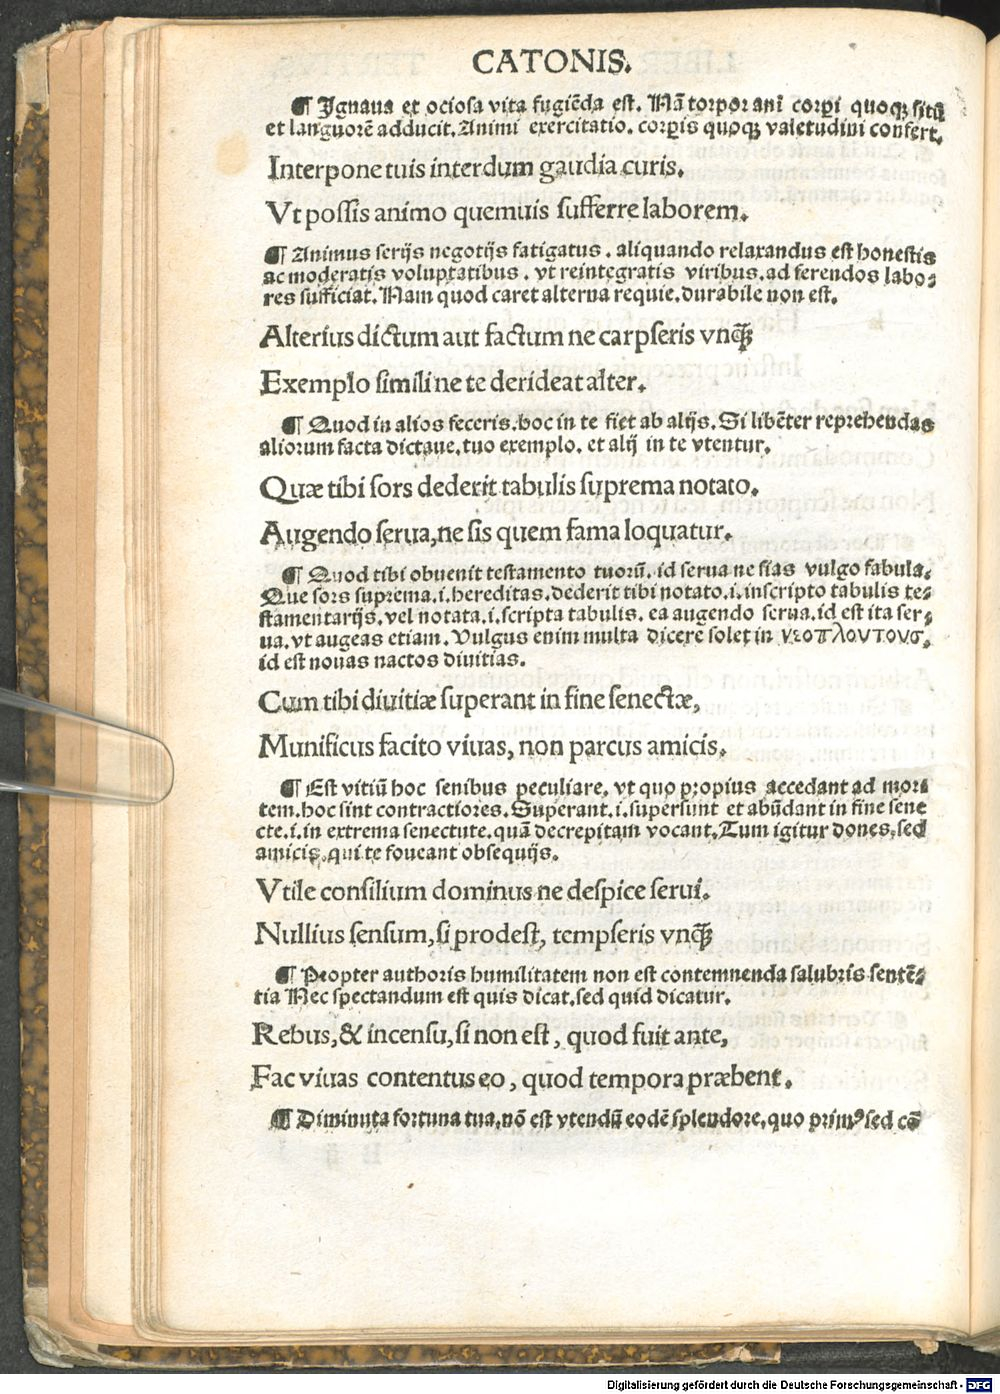 CATONIS.
¶ Ignaua et ociosa vita fugiẽda est. Nã torpor ani corpi quoqꝫ sitũ
et languorẽ adducit. Animi exercitatio. corpis quoqꝫ valetudini confert.
Interpone tuis interdum gaudia curis.
Vt possis animo quemuis sufferre laborem.
¶ Animus serijs negotijs fatigatus. aliquando relaxandus est honestis
ac moderatis voluptatibus. vt reintegratis viribus. ad ferendos labo-
res sufficiat. Nam quod caret alterna requie. durabile non est.
Alterius dictum aut factum ne carpseris vnqꝫ
Exemplo simili ne te derideat alter.
¶ Quod in alios feceris. hoc in te fiet ab alijs. Si libẽter reprehendas
aliorum facta dictaue. tuo exemplo. et alij in te vtentur.
Quæ tibi sors dederit tabulis suprema notato.
Augendo serua, ne sis quem fama loquatur.
¶ Quod tibi obuenit testamento tuorũ. id serua ne fias vulgo fabula.
Que sors suprema .i. hereditas. dederit tibi notato .i. inscripto tabulis te-
stamentarijs. vel notata .i. scripta tabulis. ea augendo serua. id est ita ser-
ua. vt augeas etiam. Vulgus enim multa dicere solet in νεοπλουτους.
id est nouas nactos diuitias.
Cum tibi diuitiæ superant in fine senectæ,
Munificus facito viuas, non parcus amicis.
¶ Est vitiũ hoc senibus peculiare. vt quo propius accedant ad mor-
tem. hoc sint contractiores. Superant .i. supersunt et abũdant in fine sene
cte .i. in extrema senectute. quã decrepitam vocant. Tum igitur dones, sed
amicis. qui te foueant obsequijs.
Vtile consilium dominus ne despice serui.
Nullius sensum, si prodest, tempseris vnqꝫ
¶ Propter authoris humilitatem non est contemnenda salubris sentẽ-
tia Nec spectandum est quis dicat. sed quid dicatur.
Rebus, & incensu, si non est, quod fuit ante,
Fac viuas contentus eo, quod tempora præbent.
¶ Diminuta fortuna tua. nõ est vtendũ eodẽ splendore. quo primꝰ sed cõ
Digitalisierung gefördert durch die Deutsche Forschungsgemeinschaft - DFG